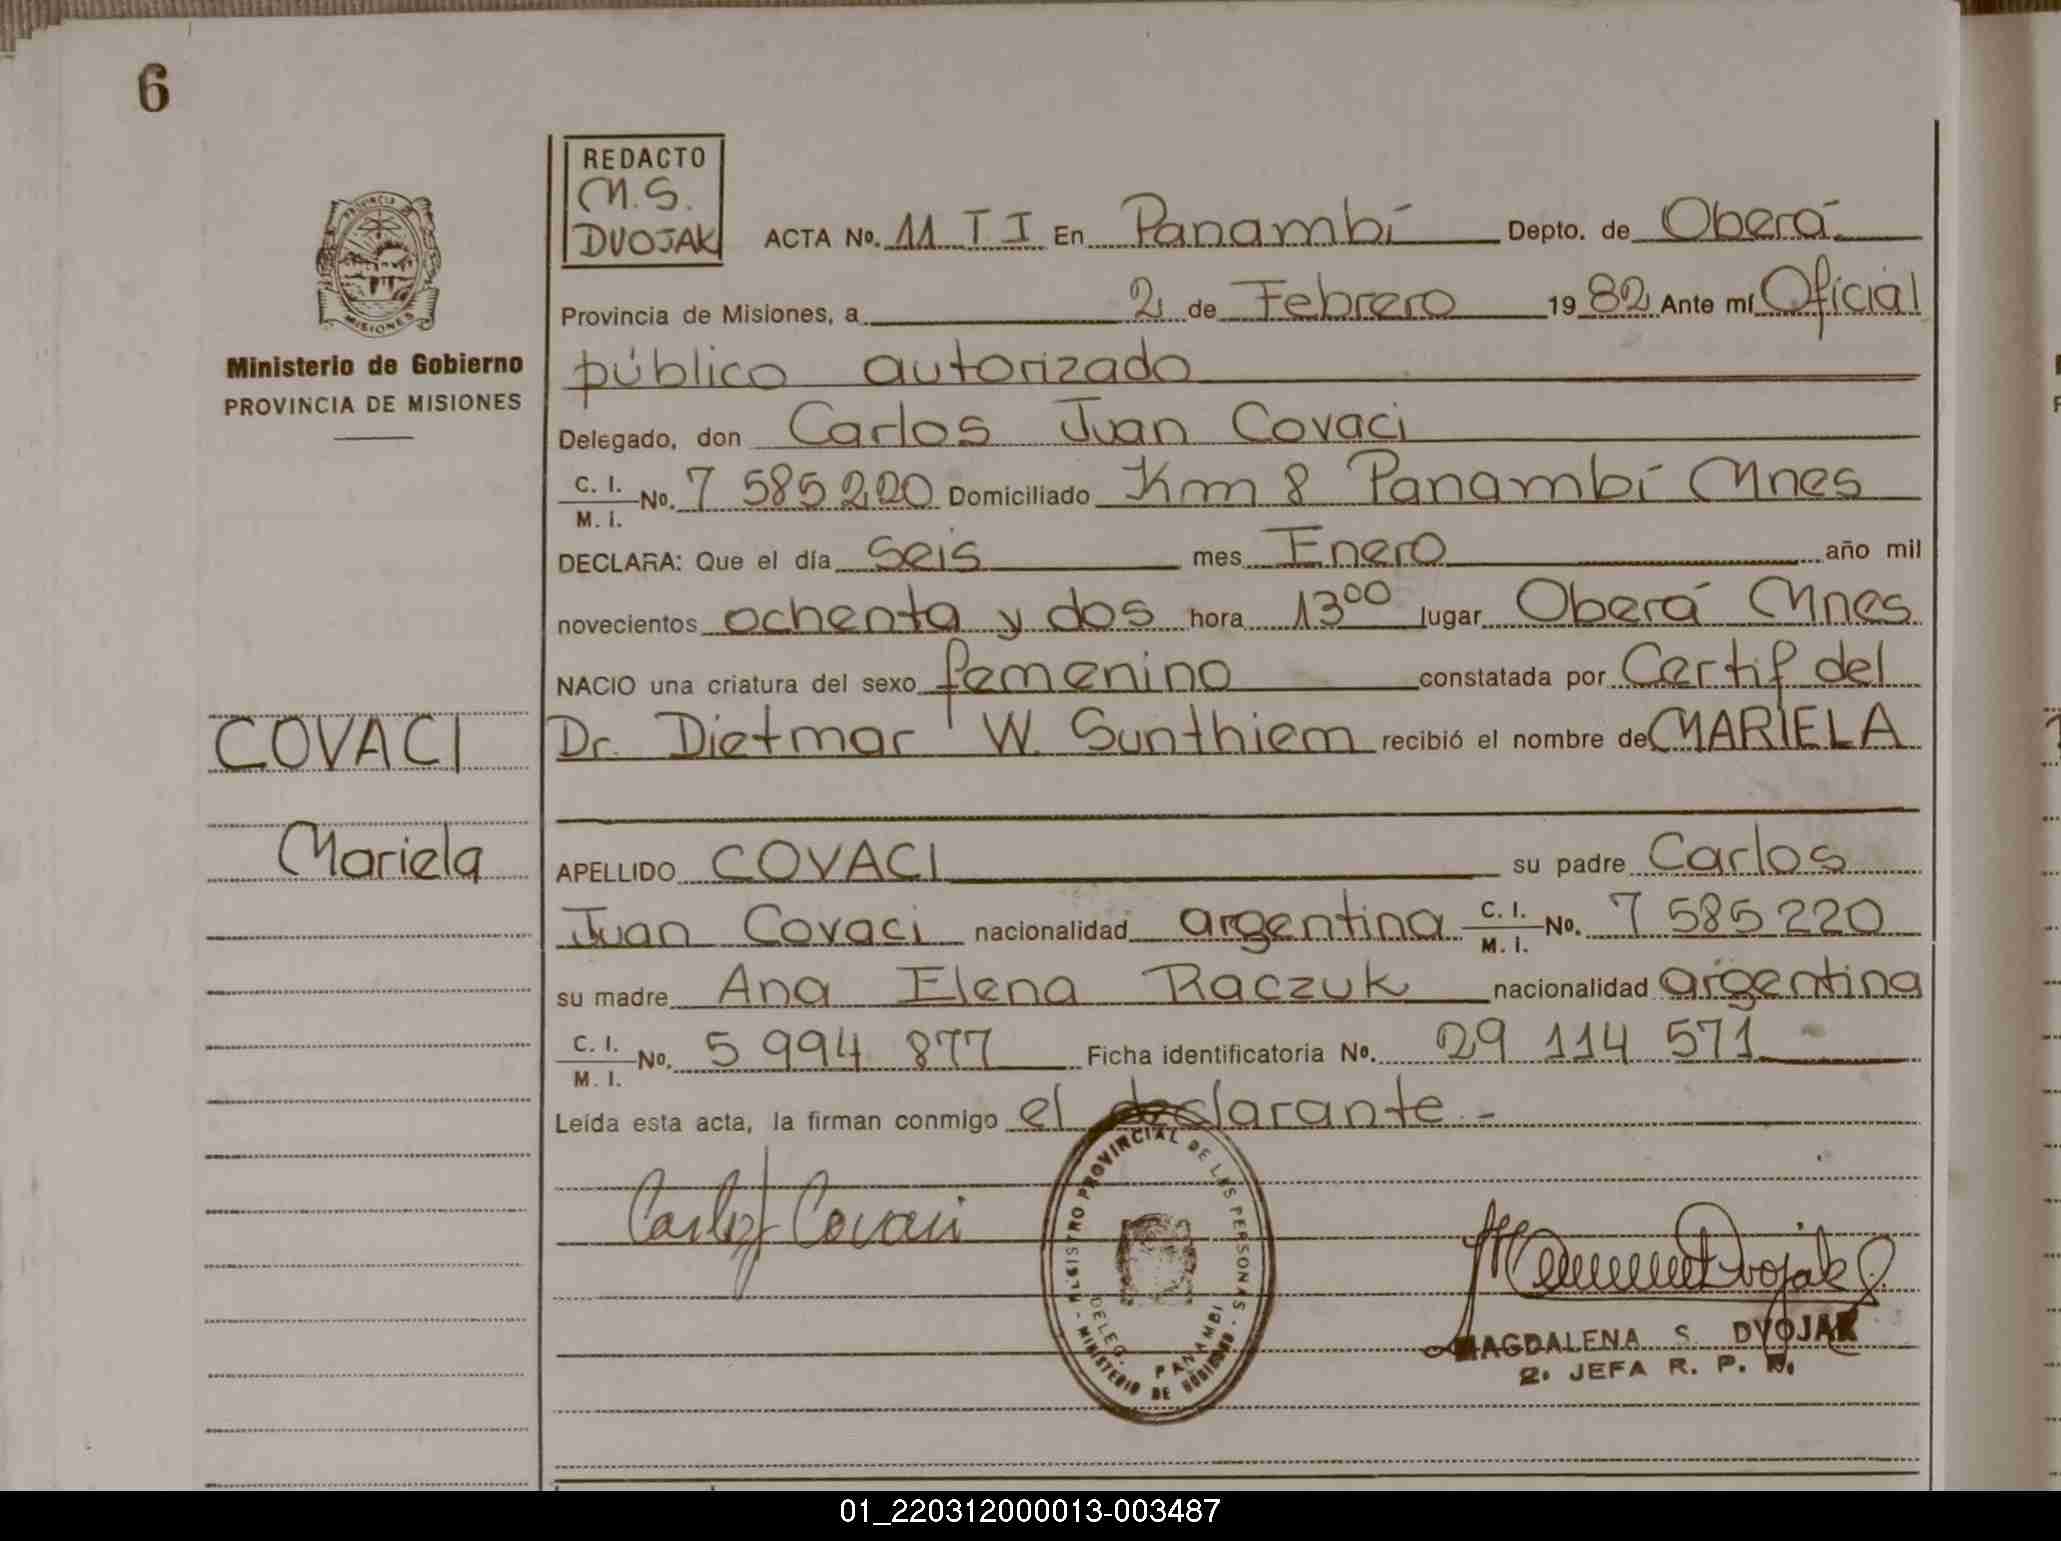 6
REDACTO
M.S.
DVOJAK
PROVINCIA DE
MISIONES
Ministerio de Gobierno
PROVINCIA DE MISIONES
ACTA Nº. 11 T I En Panambí Depto. de Oberá
Provincia de Misiones, a 2 de Febrero 19 82 Ante mí Oficial
público autorizado
Delegado, don Carlos Juan Covaci
C. I. / M. I. Nº. 7 585 220 Domiciliado Km 8 Panambí Mnes
DECLARA: Que el día seis mes Enero año mil
novecientos ochenta y dos hora 13⁰⁰ lugar Oberá Mnes
NACIO una criatura del sexo femenino constatada por Certif del
COVACI
Dr. Dietmar W. Sunthiem recibió el nombre de MARIELA
Mariela
APELLIDO COVACI su padre Carlos
Juan Covaci nacionalidad argentina C. I. / M. I. Nº. 7 585 220
su madre Ana Elena Raczuk nacionalidad argentina
C. I. / M. I. Nº. 5 994 877 Ficha identificatoria Nº. 29 114 571
Leída esta acta, la firman conmigo el declarante.-
Carlos J Covaci
REGISTRO PROVINCIAL DE LAS PERSONAS
DELEG. PANAMBI
MINISTERIO DE GOBIERNO
Dvojak
MAGDALENA S. DVOJAK
2. JEFA R. P. P.
01_220312000013-003487